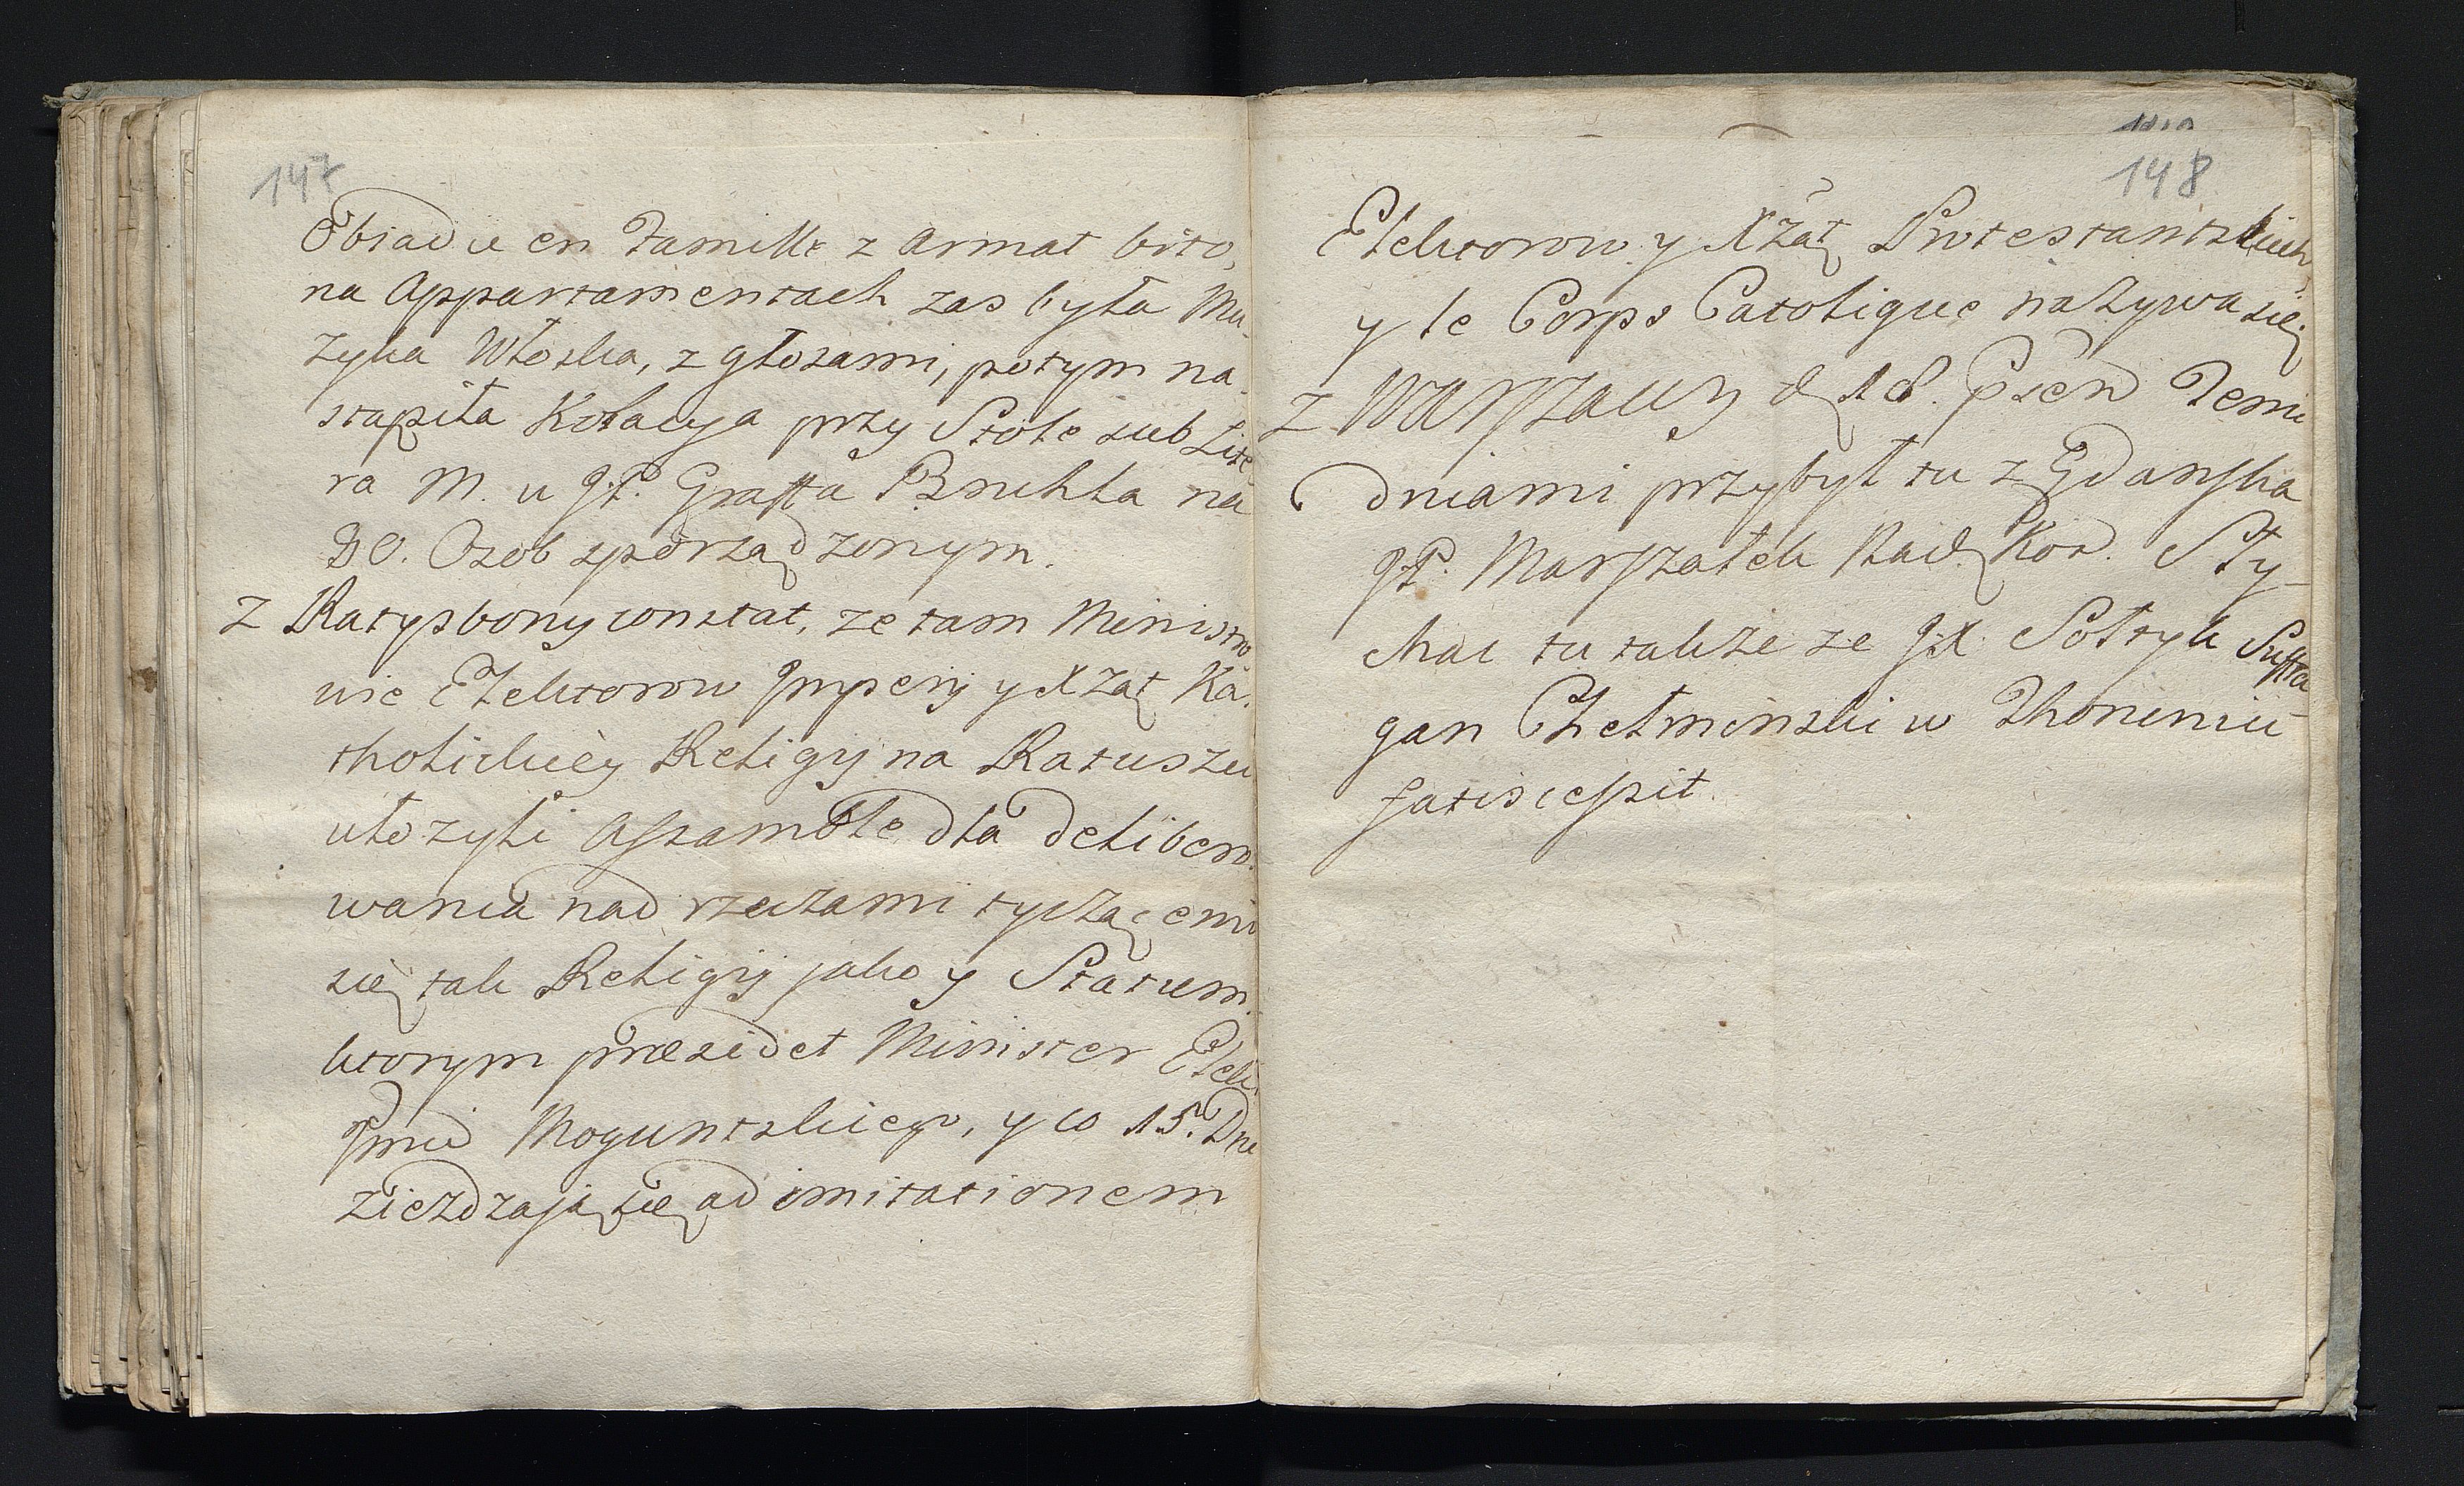 147
Obiadu en Famille z Armat bito,
na Appartamentach zas była Mu-
zyka Włoska, z głosami, potym na-
stąpiła Kolacya przy Stole sub Lite
ra M. u JP. Graffa Bruhla na
80. Osob zporządzonym.
Z Ratysbony constat, ze tam Ministro
wie Elektorow Imperij y XXżąt Ka-
tholickiey Religij na Ratuszu
ułozyli Assamble dla delibero-
wania nad rzeczami tyczącemi
się tak Religij jako y Statum
ktorym praesidet Minister Elek.
Jmci Moguntskiego, y co 15. Dni
zieżdzają się ad imitationem
148
Elektorow y XXżąt Protestantskich,
y le Corps Catolique nazywa się
Z Warszawy d. 18. Psień Temi
dniami przybył tu z Gdanska
JP. Marszałek Nad. Kor. Sły-
chac tu także ze JX. Sołtyk Suffra
gan Chełminski w Thoruniu
fatis cessit.